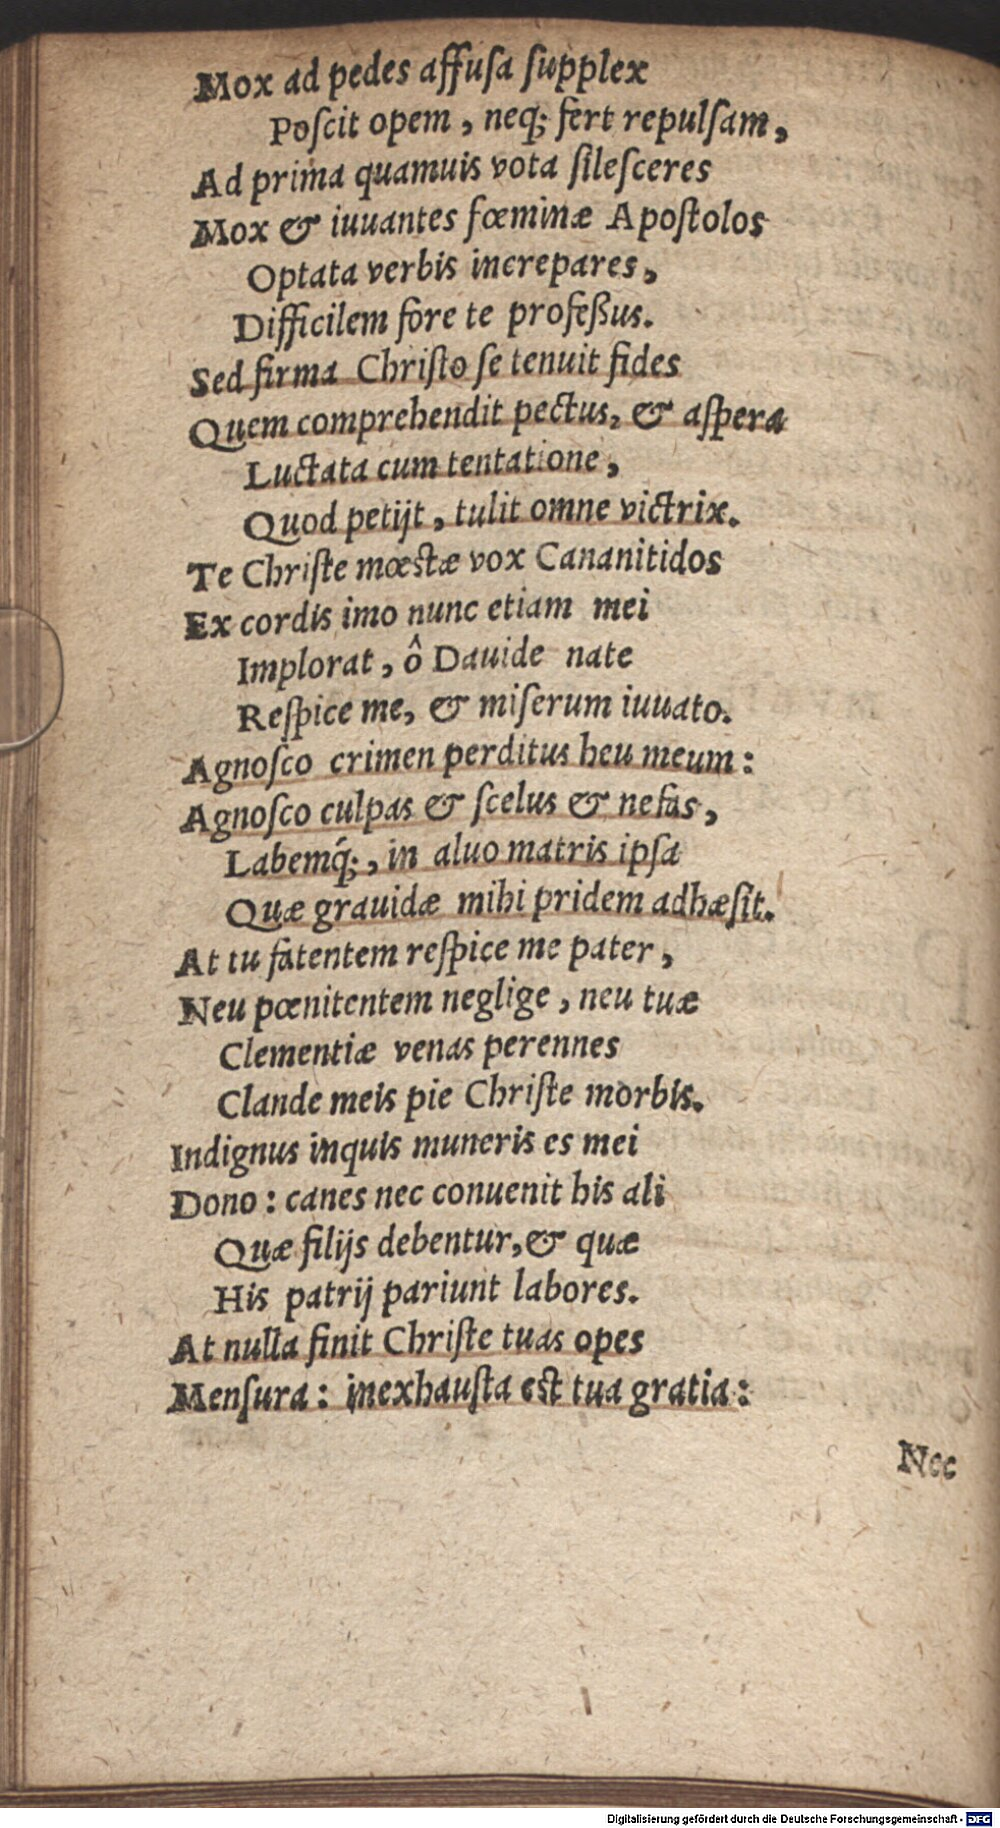 Mox ad pedes affuſa ſupplex
Poſcit opem, neq; fert repulſam,
Ad prima quamuis vota ſileſceres
Mox & iuuantes fœminæ Apoſtolos
Optata verbis increpares,
Difficilem fore te profeßus.
Sed firma Chriſto ſe tenuit fides
Quem comprehendit pectus, & aſpera
Luctata cum tentatione,
Quod petijt, tulit omne victrix.
Te Chriſte mœſtæ vox Cananitidos
Ex cordis imo nunc etiam mei
Implorat, ô Dauide nate
Reſpice me, & miſerum iuuato.
Agnoſco crimen perditus heu meum:
Agnoſco culpas & ſcelus & nefas,
Labemq́;, in aluo matris ipſa
Quæ grauidæ mihi pridem adhæſit.
At tu fatentem reſpice me pater,
Neu pœnitentem neglige, neu tuæ
Clementiæ venas perennes
Claude meis pie Chriſte morbis.
Indignus inquis muneris es mei
Dono: canes nec conuenit his ali
Quæ filijs debentur, & quæ
His patrij pariunt labores.
At nulla finit Chriſte tuas opes
Menſura: inexhauſta eſt tua gratia:
Nec
Digitalisierung gefördert durch die Deutsche Forschungsgemeinschaft - DFG